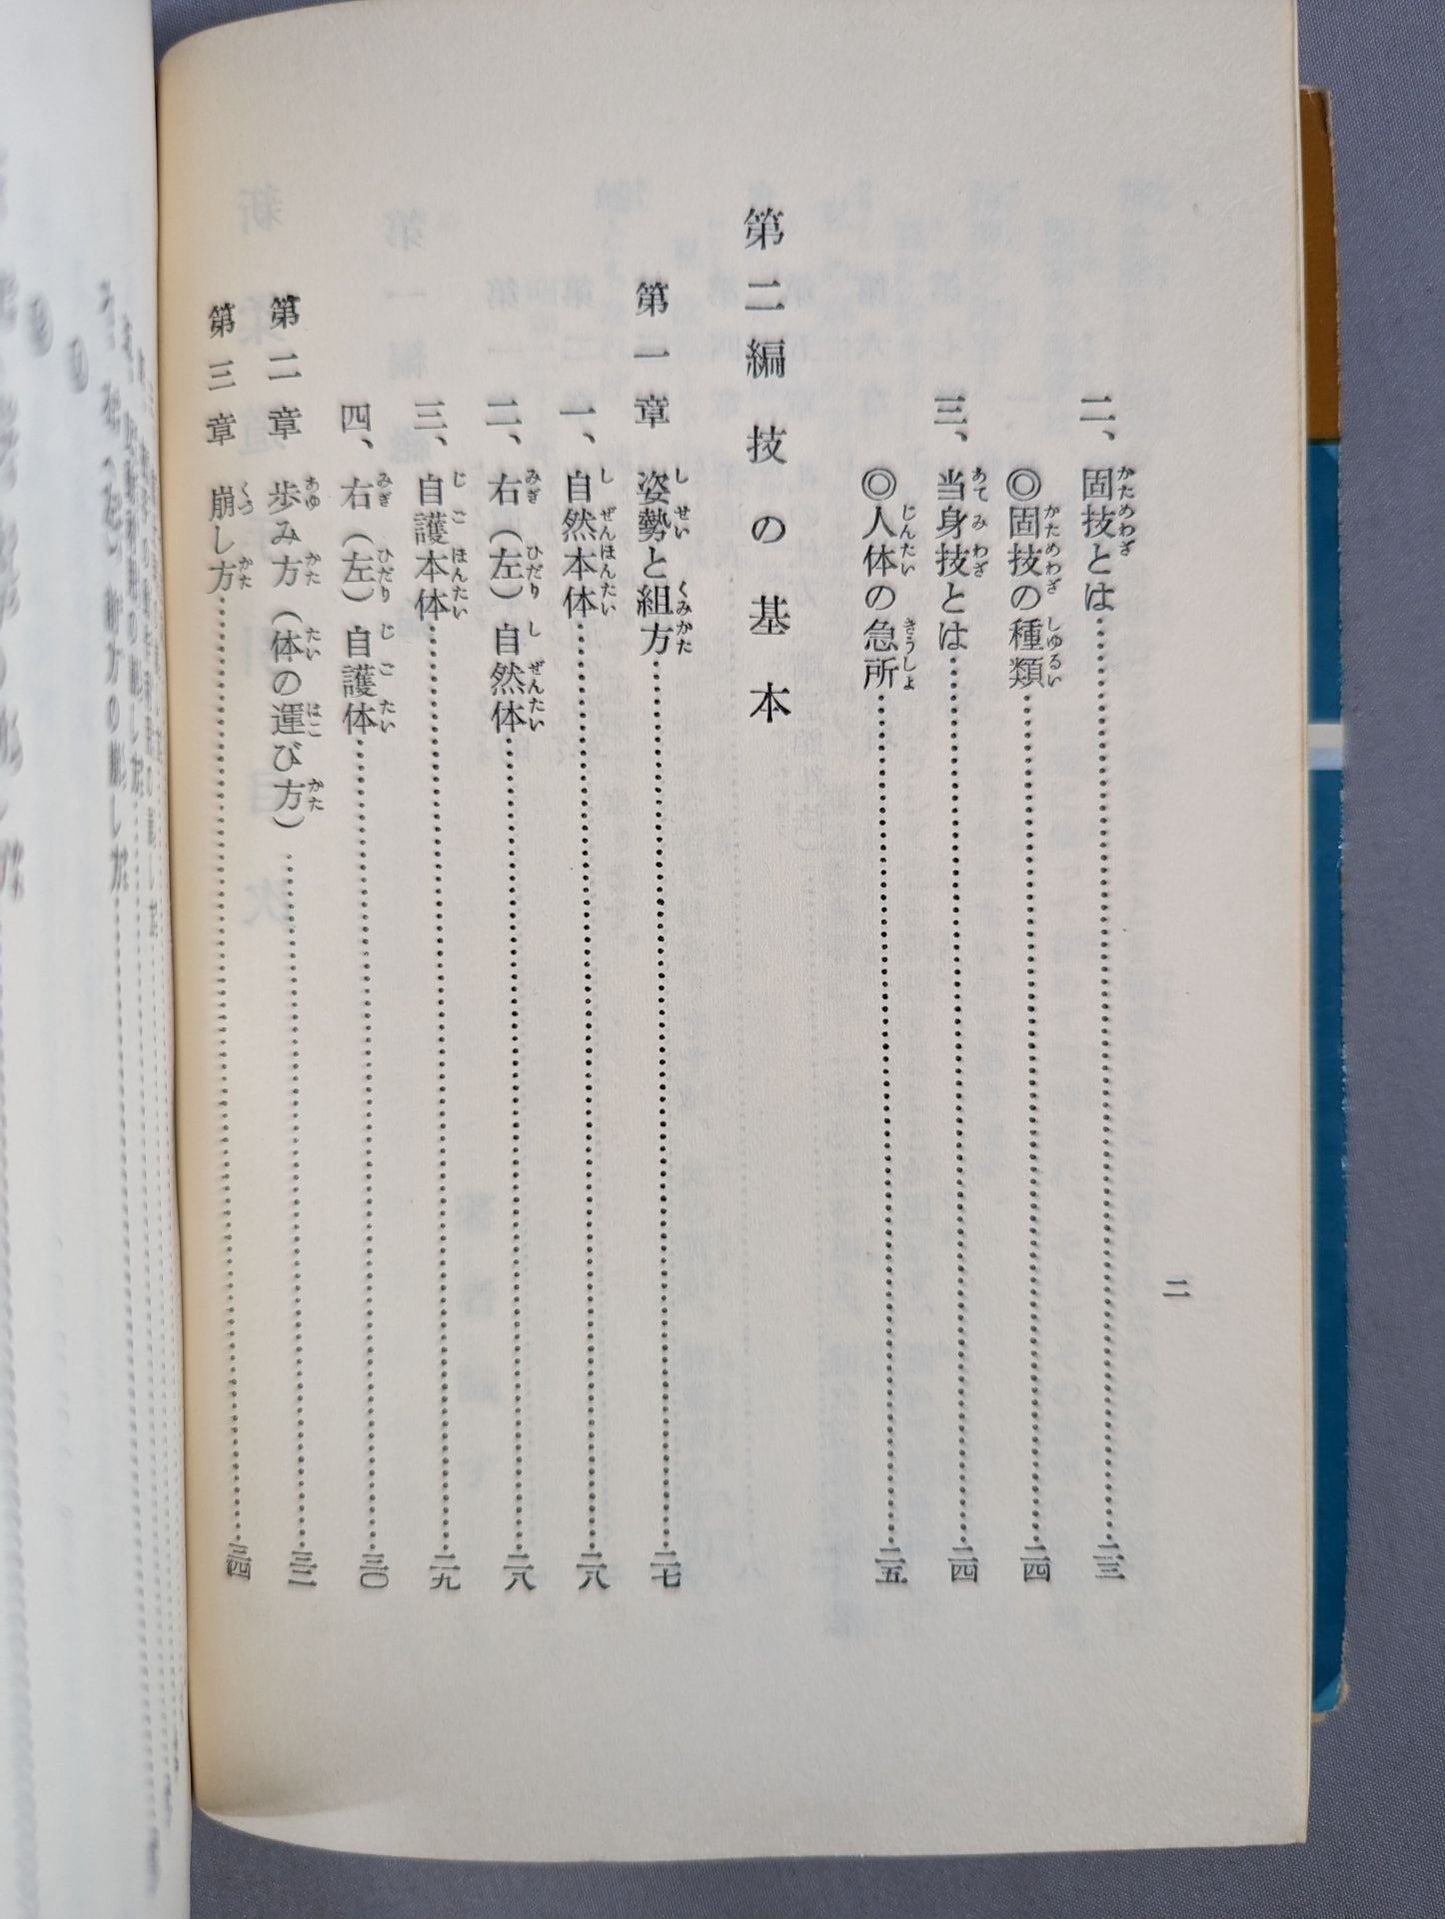 二
二、固技とは……二三
◎固技の種類……二四
三、当身技とは……二四
◎人体の急所……二五
第二編 技の基本
第一章 姿勢と組方……二七
一、自然本体……二八
二、右(左)自然体……二八
三、自護本体……二九
四、右(左)自護体……三〇
第二章 歩み方(体の運び方)……三二
第三章 崩し方……三四